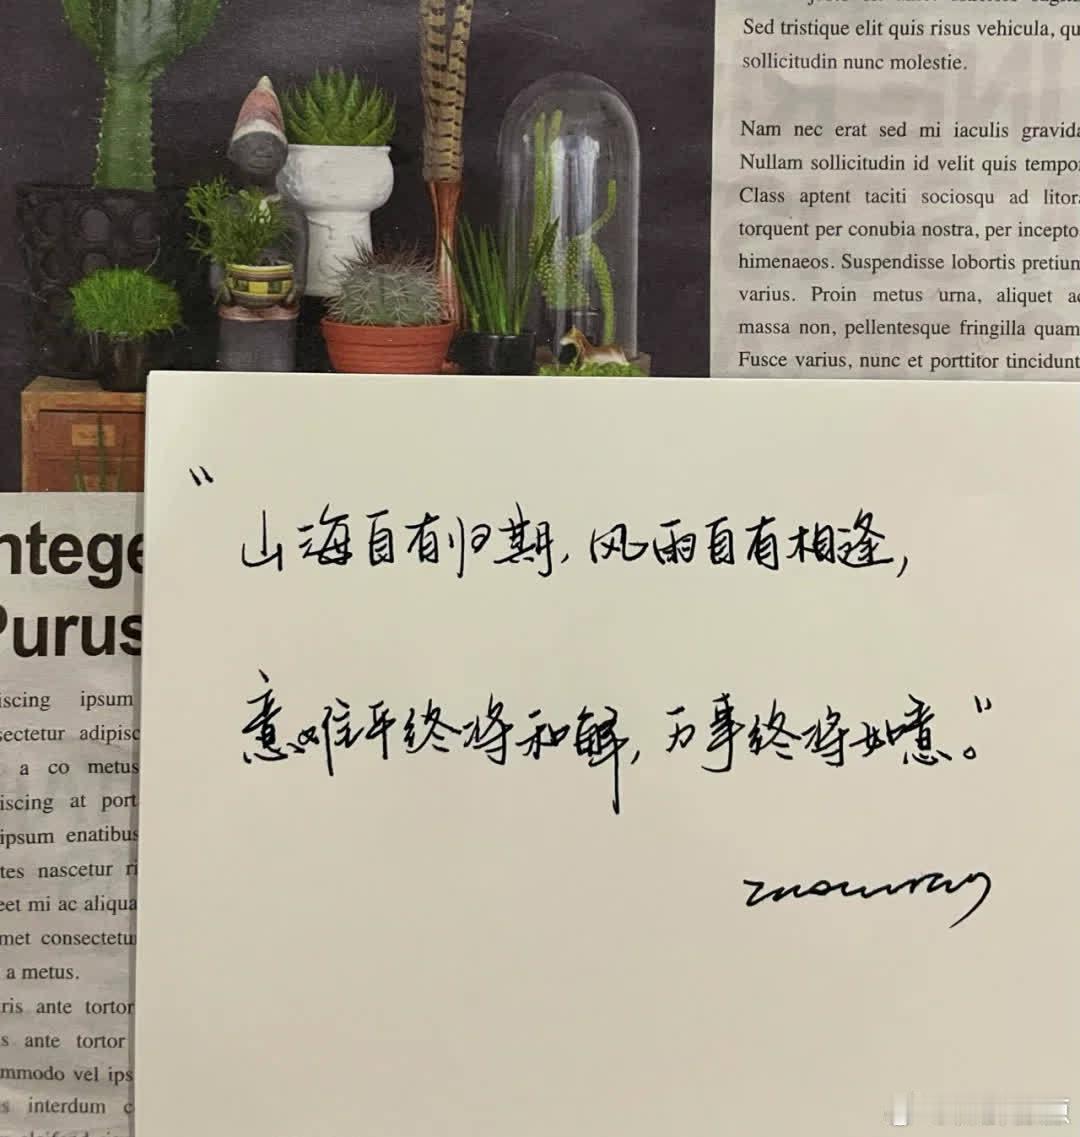 Sed tristique elit quis risus vehicula, qu
sollicitudin nunc molestie.
Nam nec erat sed mi iaculis gravida
Nullam sollicitudin id velit quis tempo
Class aptent taciti sociosqu ad litor
torquent per conubia nostra, per incepto
himenaeos. Suspendisse lobortis pretium
varius. Proin metus urna, aliquet ac
massa non, pellentesque fringilla quam
Fusce varius, nunc et porttitor tincidunt
"山海自有归期,风雨自有相逢,
意难平终将和解,万事终将如意。"
ntege
Purus
iscing ipsum
sectetur adipisc
a co metus
iscing at port
ipsum enatibus
tes nascetur ri
eet mi ac aliqua
met consectetu
a metus.
ris ante tortor
s ante tortor
mmodo vel ips
s interdum c